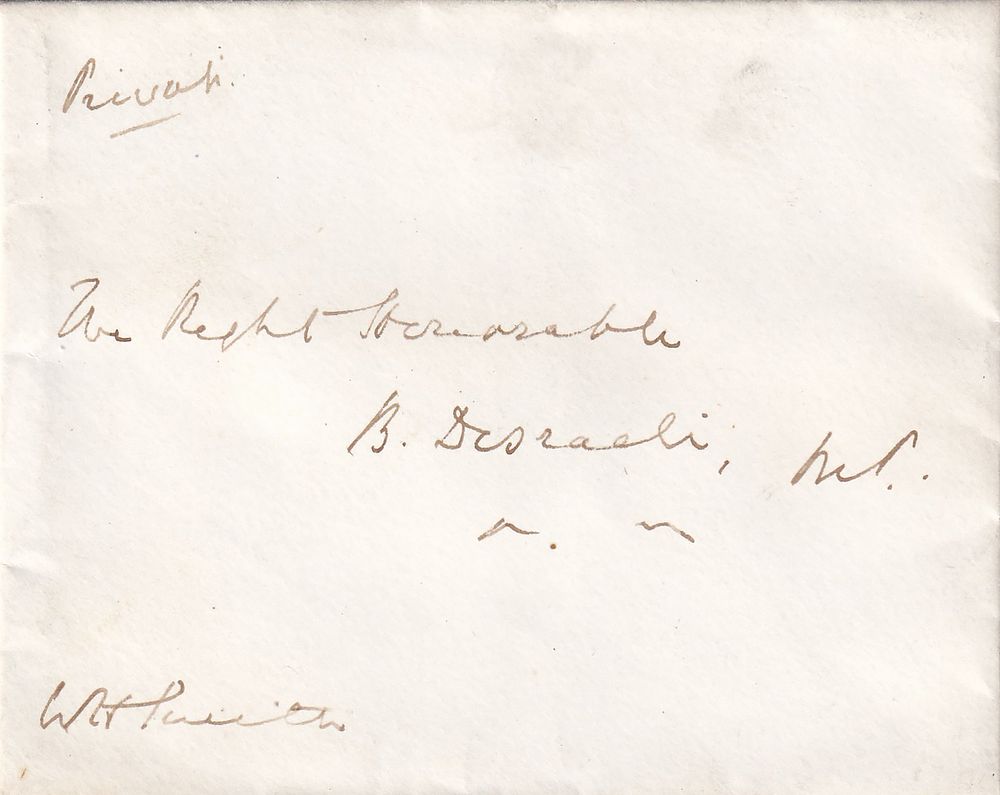 Private.
The Right Honorable
B. Disraeli, M.P.
WHSmith